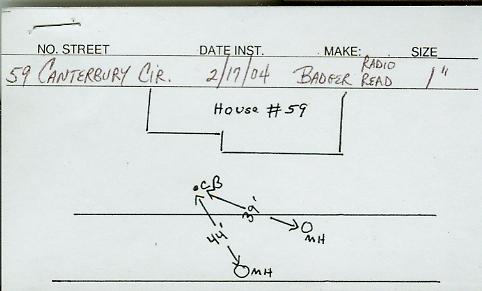 NO. STREET DATE INST. MAKE: SIZE
59 CANTERBURY CIR. 2/17/04 BADGER RADIO READ 1"
HOUSE #59
CB
39'
MH
44'
MH